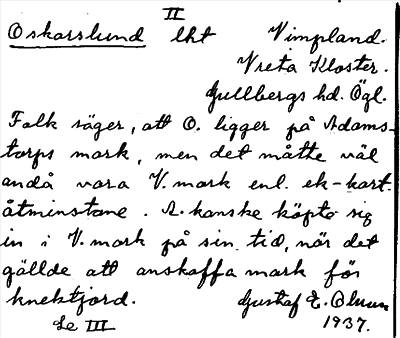 II
Oskarslund lht Vimpland.
Vreta Kloster.
Gullbergs hd. Ögl.
Folk säger, att O. ligger på Adams-
torps mark, men det måtte väl
ändå vara V. mark enl. ek-kart.
åtminstone. A. kanske köpte sig
in i V. mark på sin tid, när det
gällde att anskaffa mark för
knektjord.
Gustaf E.
Se III 1937.